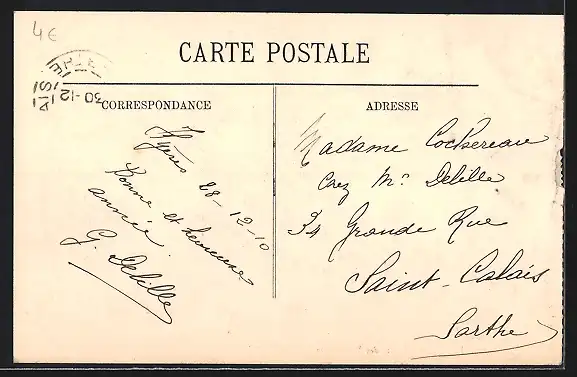 4€
CARTE POSTALE
30-12
CORRESPONDANCE
ADRESSE
Hyères 28-12-10
Bonne et heureuse
année
G. Delille
Madame Cochereau
chez Mr Delille
34 Grande Rue
Saint-Calais
Sarthe